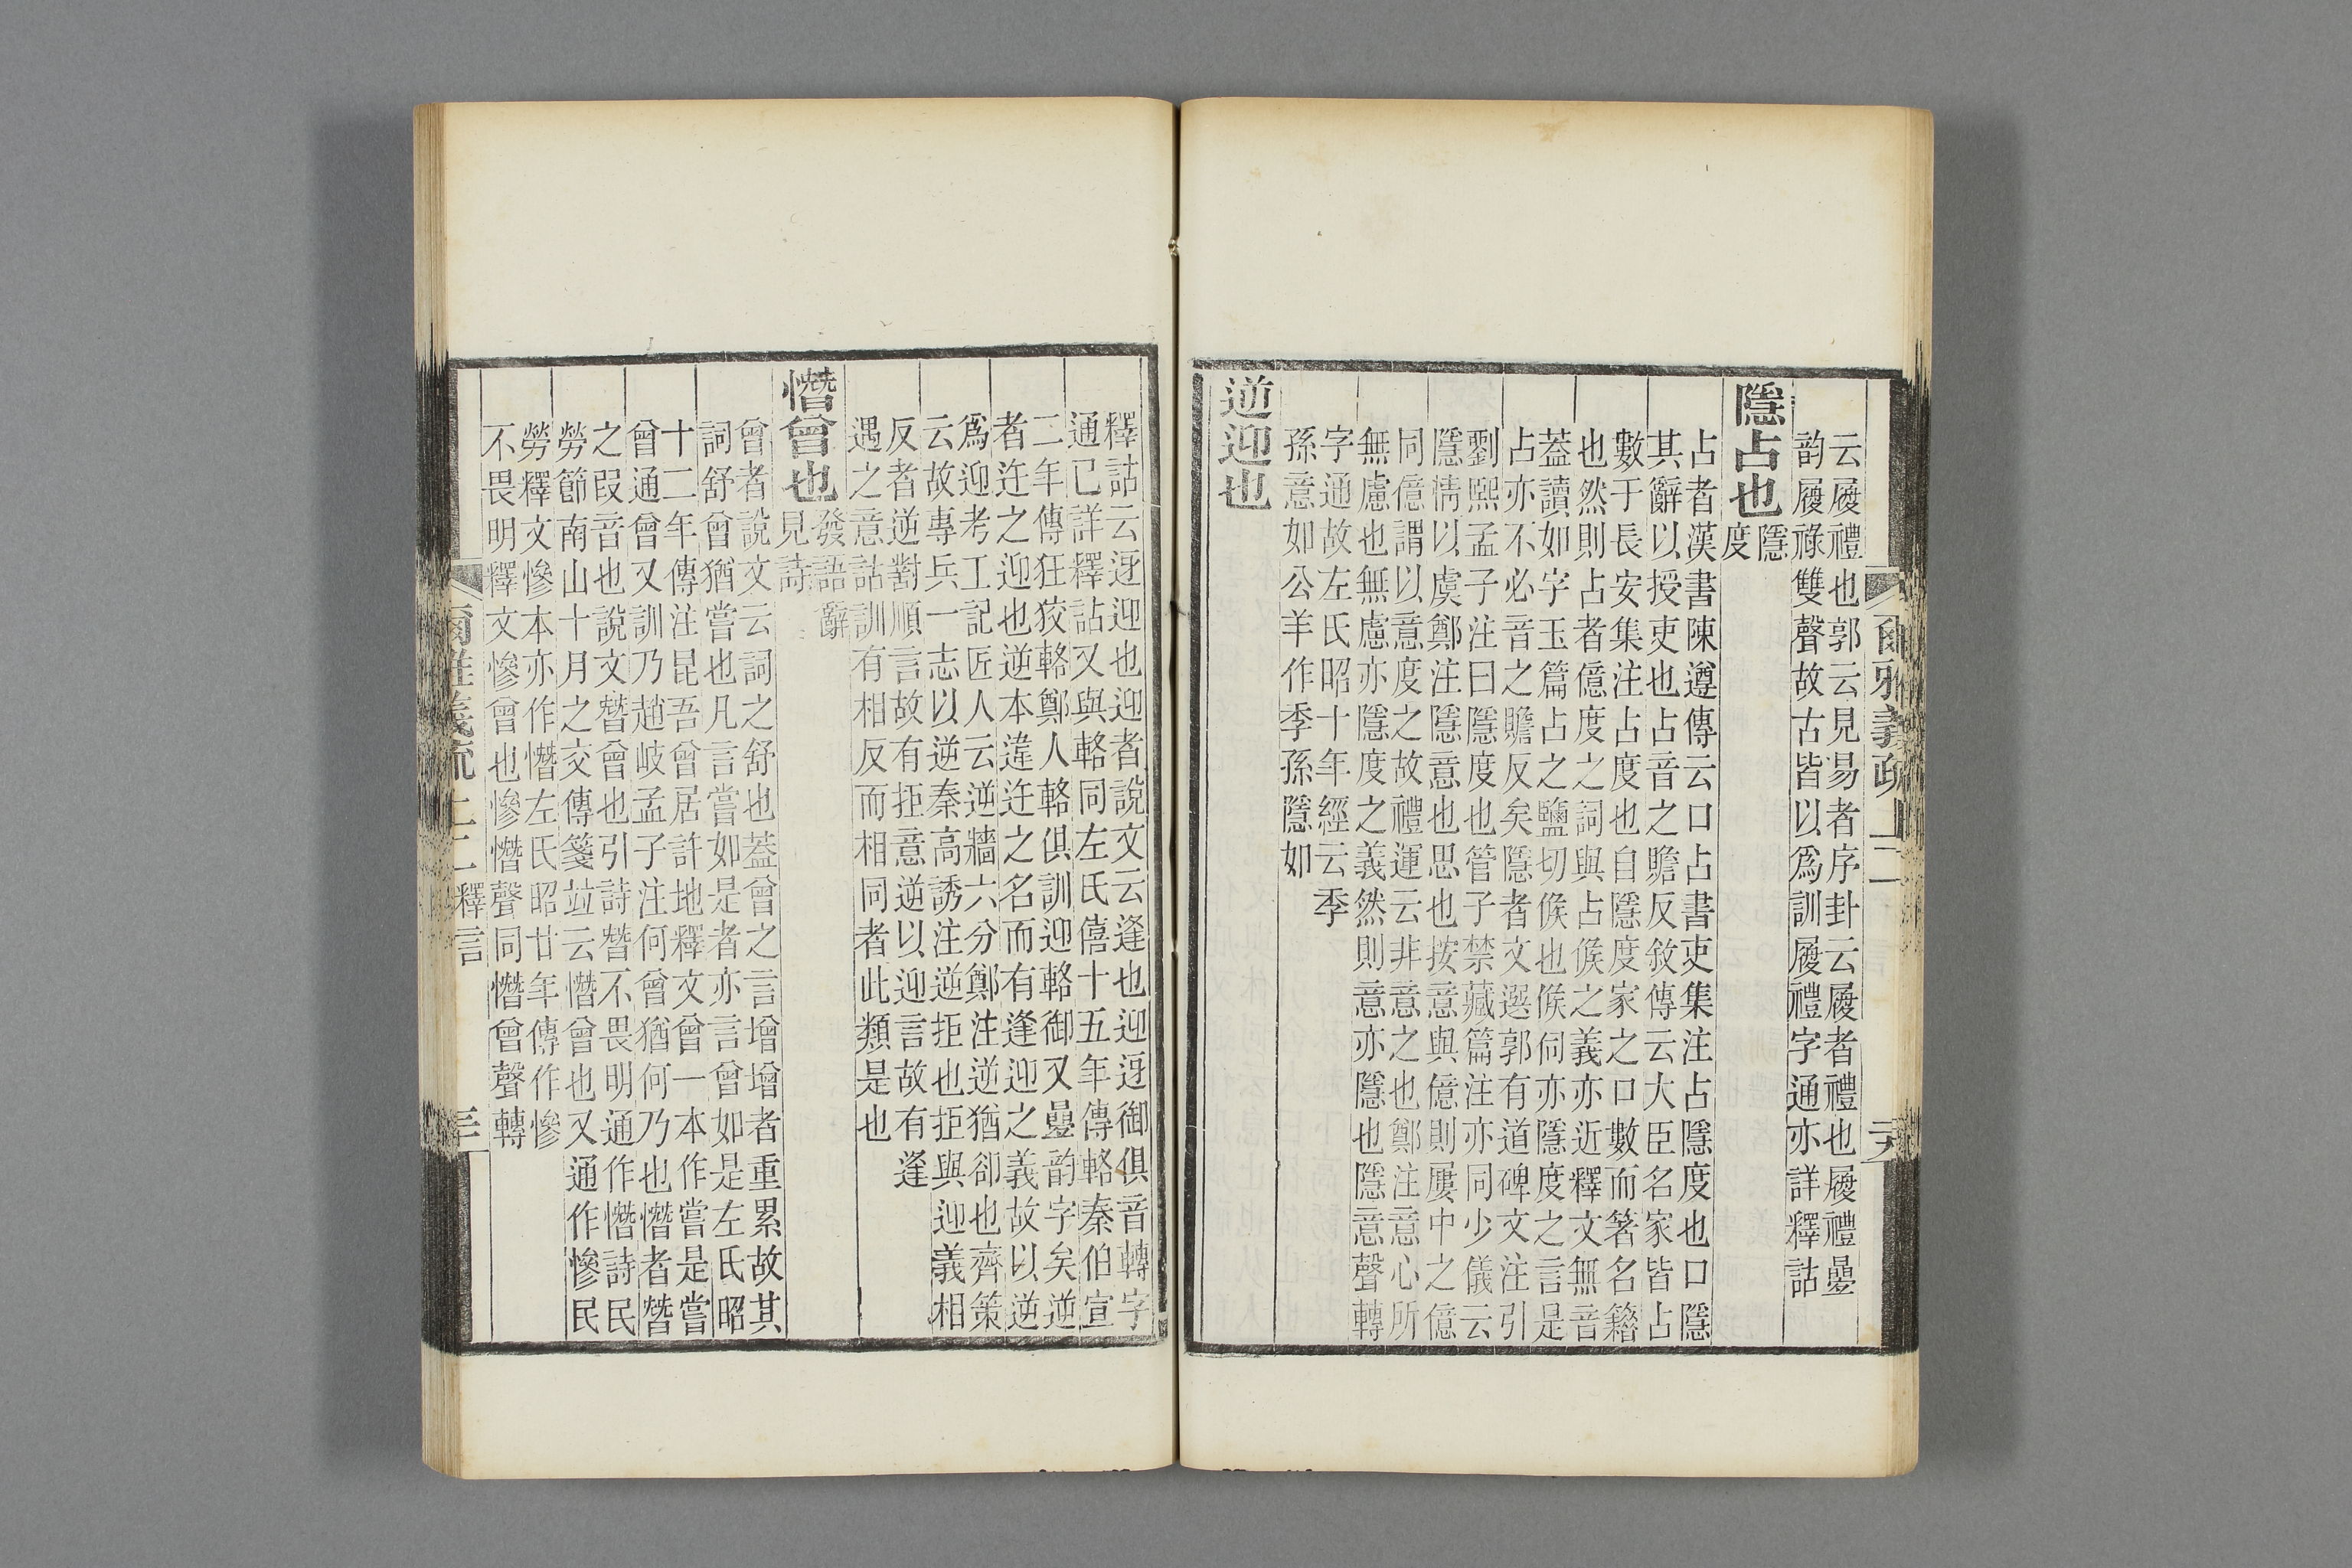 爾雅義疏 上二
云履禮也郭云見易者序卦云履者禮也履禮曡
韵履祿雙聲故古皆以爲訓履禮字通亦詳釋詁
隱占也 隱
度
占者漢書陳遵傳云口占書吏集注占隱度也口隱
其辭以授吏也占音之贍反敘傳云大臣名家皆占
數于長安集注占度也自隱度家之口數而著名籍
也然則占者億度之詞與占候之義亦近釋文無音
葢讀如字玉篇占之鹽切候也候伺亦隱度之言是
占亦不必音之贍反矣隱者文選郭有道碑文注引
劉熙孟子注曰隱度也管子禁藏篇注亦同少儀云
隱情以虞鄭注隱意也思也按意與億則屢中之億
同億謂以意度之故禮運云非意之也鄭注意心所
無慮也無慮亦隱度之義然則意亦隱也隱意聲轉
字通故左氏昭十年經云季
孫意如公羊作季孫隱如
逆迎也
釋詁云迓迎也迎者說文云逢也迎迓御俱音轉字
通已詳釋詁又與輅同左氏僖十五年傳輅秦伯宣
二年傳狂狡輅鄭人輅俱訓迎輅御又曡韵字矣逆
者迕之迎也逆本違迕之名而有逢迎之義故以逆
爲迎考工記匠人云逆牆六分鄭注逆猶卻也齊策
云故專兵一志以逆秦高誘注逆拒也拒與迎義相
反者逆對順言故有拒意逆以迎言故有逢
遇之意詁訓有相反而相同者此類是也
憯曾也 發語辭
見詩
曾者說文云詞之舒也葢曾之言增增者重累故其
詞舒曾猶嘗也凡言嘗如是者亦言曾如是左氏昭
十二年傳注昆吾曾居許地釋文曾一本作嘗是嘗
曾通曾又訓乃趙岐孟子注何曾猶何乃也憯者朁
之叚音也說文朁曾也引詩朁不畏明通作憯詩民
勞節南山十月之交傳箋竝云憯曾也又通作慘民
勞釋文慘本亦作憯左氏昭廿年傳作慘
不畏明釋文慘曾也慘憯聲同憯曾聲轉
爾雅義疏 上二 釋言